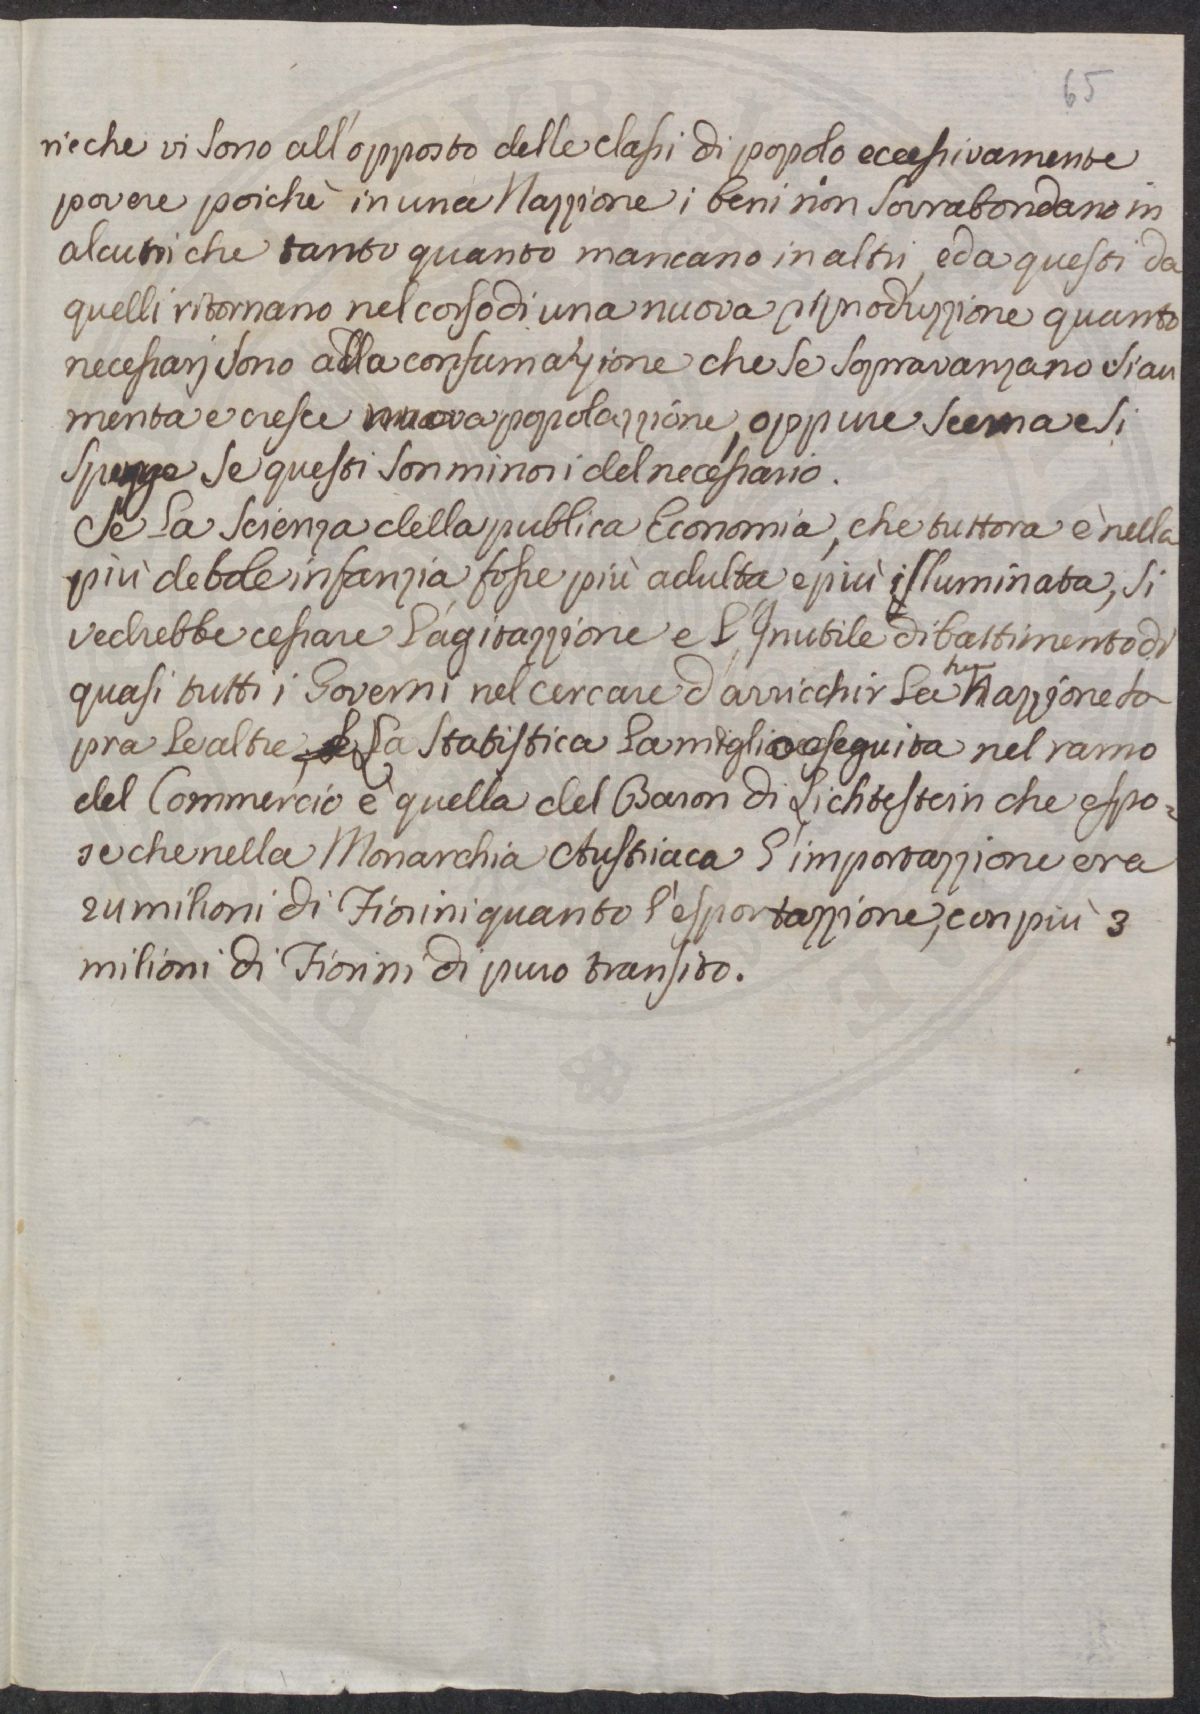 65
rie che vi sono all'opposto delle classi di popolo eccessivamente
povere poichè in una Nazzione i beni non sovrabondano in
alcuni che tanto quanto mancano in altri, e da questi da
quelli ritornano nel corso di una nuova riproduzzione quanto
necessarj sono alla consumazione che se sopravanzano si au
menta e cresce nuova popolazzione, oppure scema e si
se questi son minori del necessario.
Se La scienza della publica Economia, che tuttora è nella
più debole infanzia fosse più adulta e più illuminata, si
vedrebbe cessare L'agitazzione e L'Inutile dibattimento di
quasi tutti i Governi nel cercare d'arricchir La Nazzione so
pra Le altre, La Statistica La miglio eseguita nel ramo
del Commercio è quella del Baron di Lichtestein che espo=
se che nella Monarchia Austriaca l'importazzione era
milioni di Fiorini quanto l'esportazzione, con più 3
milioni di Fiorini di puro transito.